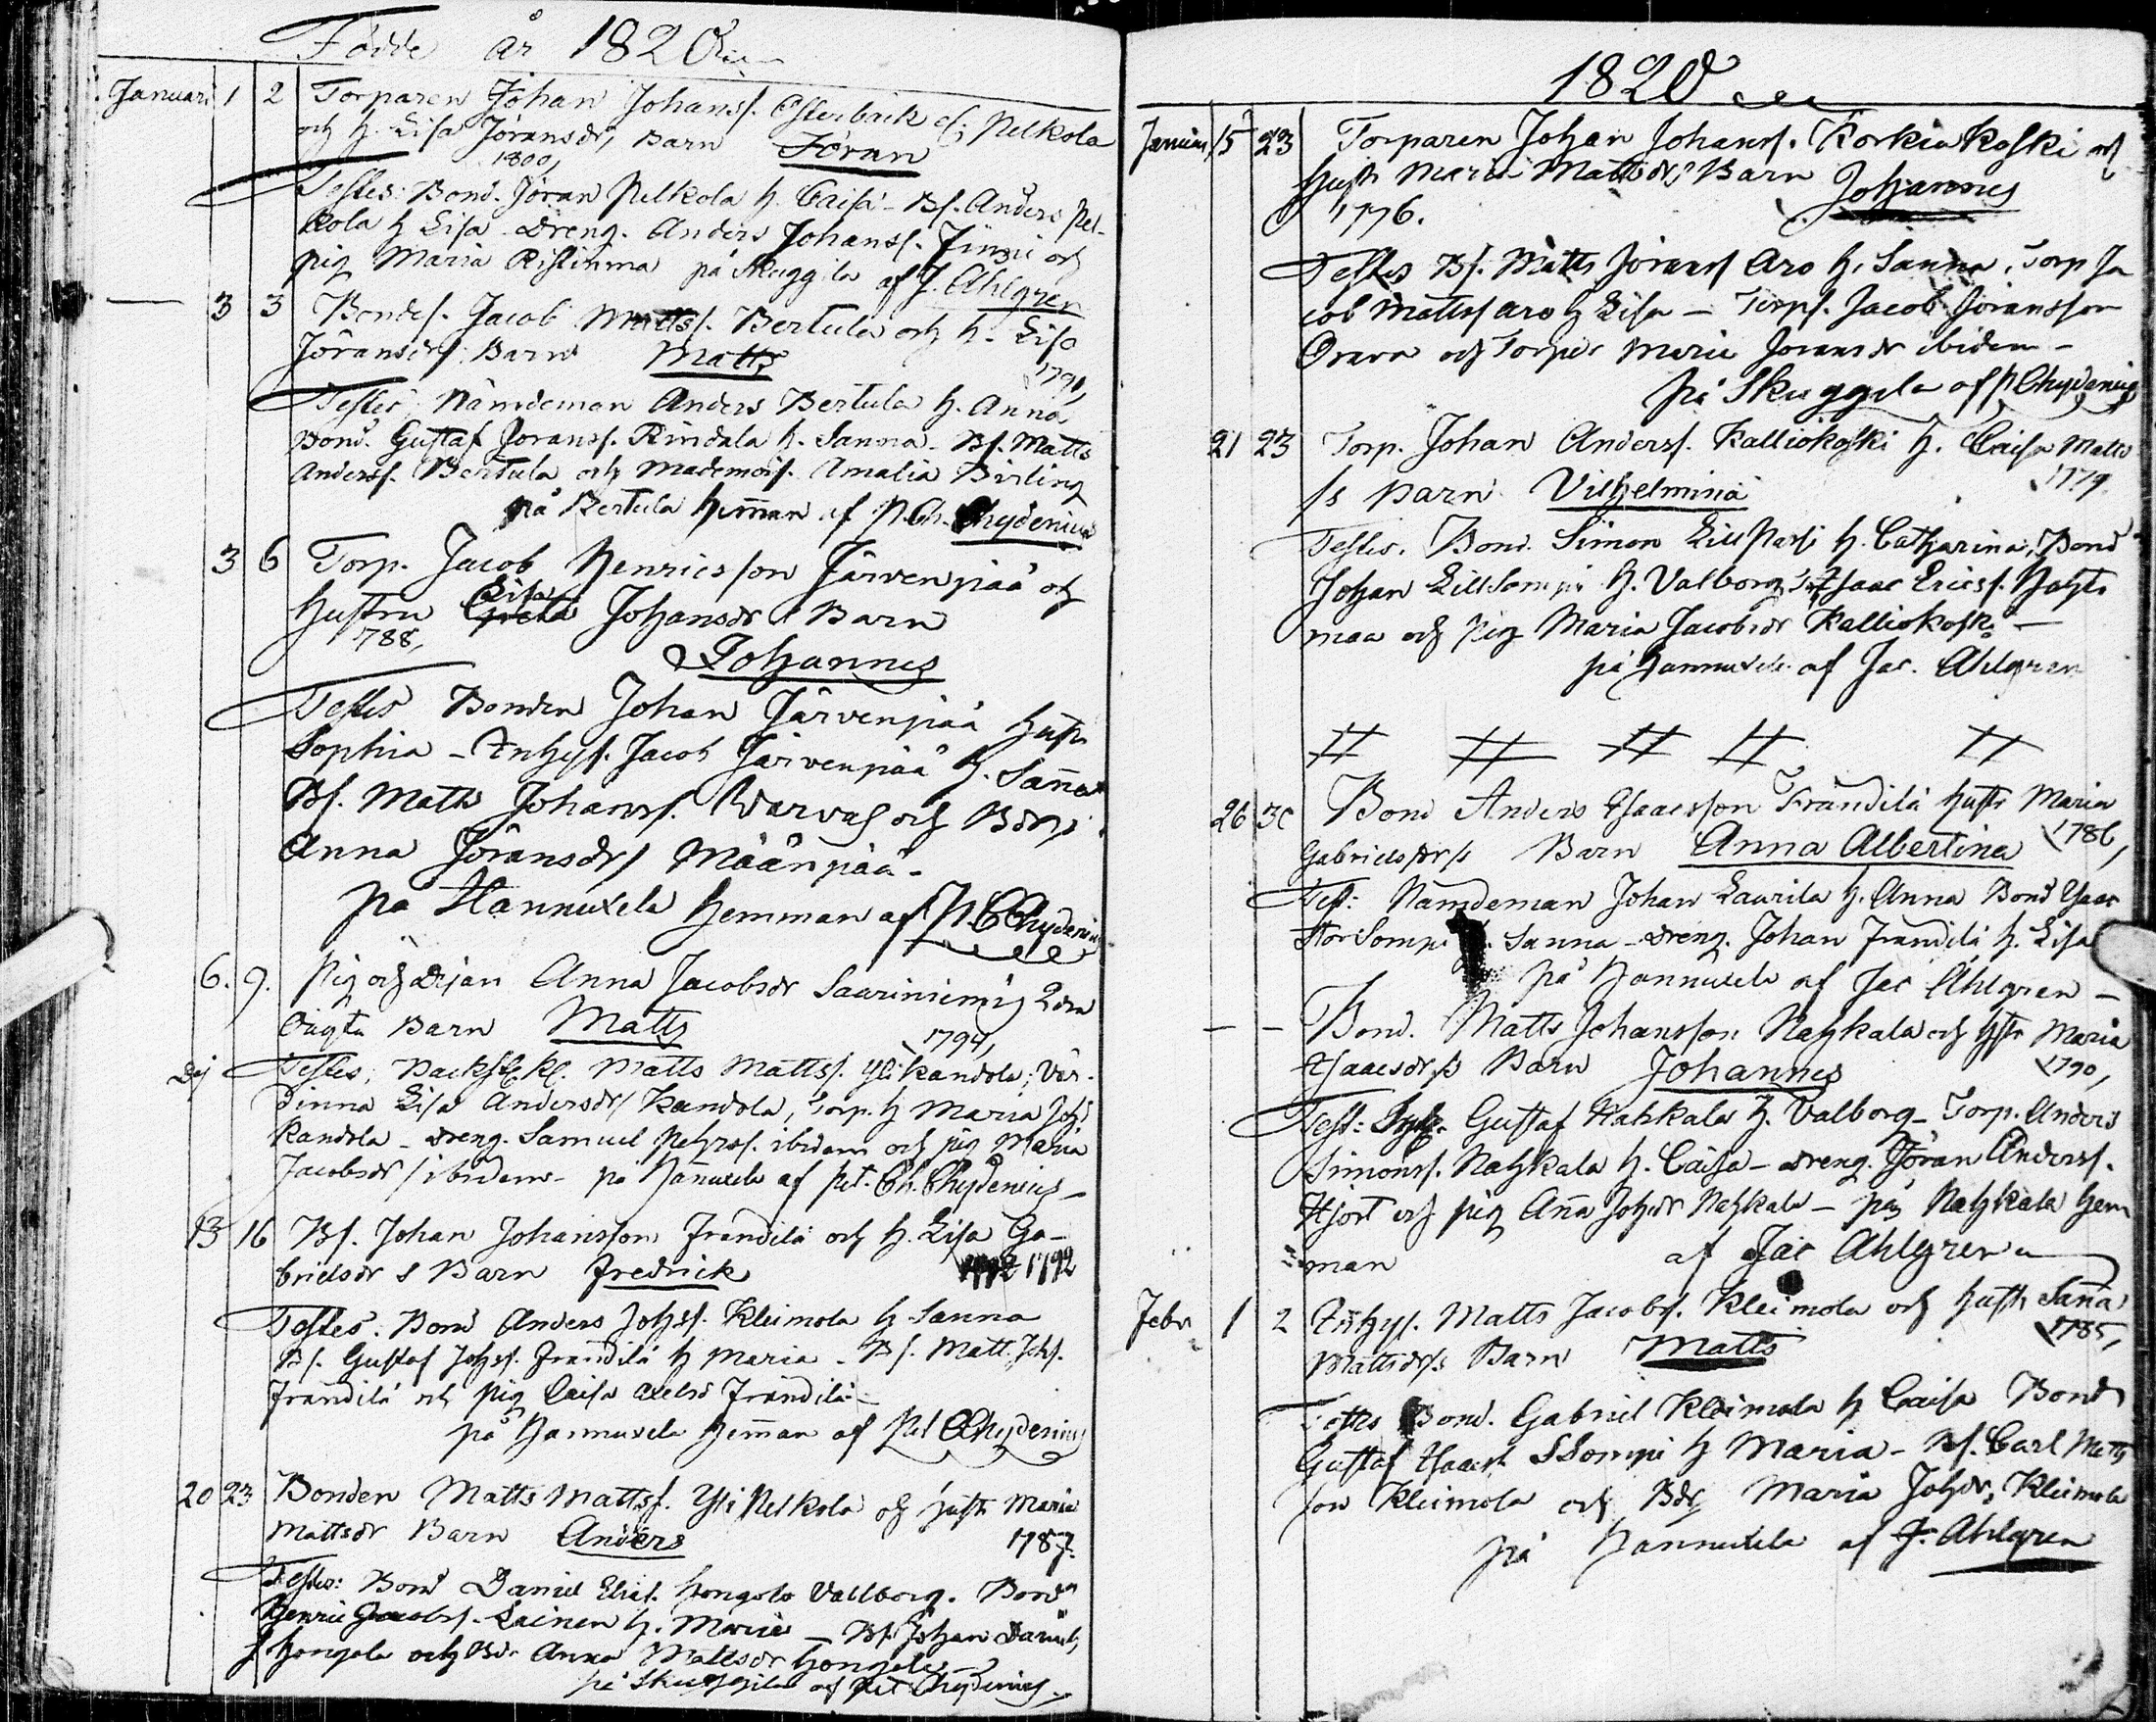 Födde år 1820
Januari 1 2 Torparen Johan Johanss. Österback of Pelkola
och h. Lisa Jöransdr, Barn Jöran
1800,
Testes: Bond. Jöran Pelkola h. Caisa - Bs. Anders Pel-
kola h Lisa - Dreng. Anders Johanss. och
pig Maria Ristinma på Skuggila af J. Ahlgren
3 3 Bondes. Jacob Mattss. Bertula och h. Lisa
Jöransdr, Barn Matts 1790,
Testes, Nämdeman Anders Bertula h. Anna
Bond. Gustaf Joranss. Rindala h. Sanna - Bs. Matts
Anderss. Bertula och Mademois. Amalia Birling
på Bertula Hem̄an af P. Ch. Chydenius
3 6 Torp. Jacob Henricsson Järvenpää och
Lisa
hustru Greta Johansdr Barn
788,
Johannes
Testes Bonden Johan Järvenpää hustr
Sophia - Inhys. Jacob Järvenpää h. San̄a
Bs. Matts Johanss. Warvas och Bdr
Anna Jöransdr Määnpää -
på Hannuxela Hemman af P. C Chydenius
6. 9. Pig och Anna Jacobsdr Saariniemis 2dra
oägta Barn Matts 1794,
Testes, Matts Mattss. Ylikandola; Vär-
dinna Lisa Andersdr Kandola, Torp. h Maria Joh
Kandola - Dreng. Samuel Pehrss. ibidem och pig Maria
Jacobsdr ibidem - på Han̄uxela af Pet. Ch. Chydenius -
13 16 Bs. Johan Johansson Frändilä och h. Lisa Ga-
brielsdr s Barn Fredrick 1792
Testes: Bond Anders Johss. Kleimola h Sanna
Bs. Gustaf Johss. Frändilä h Maria - Bs. Matt. Johs.
Frändilä och pig Caisa Axelsd Frändilä -
på Hannuxela Hem̄an af Pet Chydenius
20 23 Bonden Matts Mattss. Yli Pelkola och hustr Maria
Mattsdr Barn Anders 1787.
Testes: Bond Daniel Elias. Hongola Vallborg. Bond
Henric Jacobss. Lainen h. Maria - Bs. Johan Daniels
Hongola och Bdr Anna Mattsdr Hongola -
på Skuggila af Pet Chydenius
1820
Januari 15 23 Torparen Johan Johanss. Korkiakoski och
hustr Maria Mattsdr Barn Johannes
1776.
Testes Bs. Matts Jöranss Aro h. Sanna, Torp Ja
cob Mattss Aro h Lisa - Torps. Jacob Jöransson
Orava och Torpdr Maria Joransdr ibidem -
på Skuggila af P. Chydenius
21 23 Torp. Johan Anderss. Kalliokoski h. Caisa Matts
1779.
s Barn Vilhelmina
Testes. Bond. Simon h. Catharina, Bond
Johan Lill Sompi h. Valborg, Isaac Ericss. Hahto
maa och pig Maria Jacobsdr Kalliokoski -
på Hannuxela af Jac. Ahlgren
# # # # #
26 30 Bond Anders Isaacsson Frändilä hustr Maria
Gabrielsdr s Barn Anna Albertina 1786,
Test: Nämdeman Johan Laurila h. Anna Bond Isaac
Stor Sompi h. Sanna - Dreng. Johan Frändilä h. Lisa
på Hannuxela af Jac Ahlgren -
- - Bond. Matts Johansson Nahkala och hstr Maria
Isaacsdr s Barn Johannes 1790,
Test: Gustaf Nahkala h. Valborg - Torp. Anders
Simonss. Nahkala h. Caisa - Dreng. Jöran Anderss.
Hjort och pig An̄a Johsdr Nahkala - på Nahkala Hem
man af Jac Ahlgren
Febr 1 2 Inhys. Matts Jacobss. Kleimola och hustr San̄a
1785,
Mattsdr s Barn Matts
Testes Bond. Gabriel Kleimola h Caisa Bond
Gustaf Isaacss. SSompi h Maria - Bs. Carl Matts
son Kleimola och Bdr Maria Johdr, Kleimola
på Hannuxela af J. Ahlgren